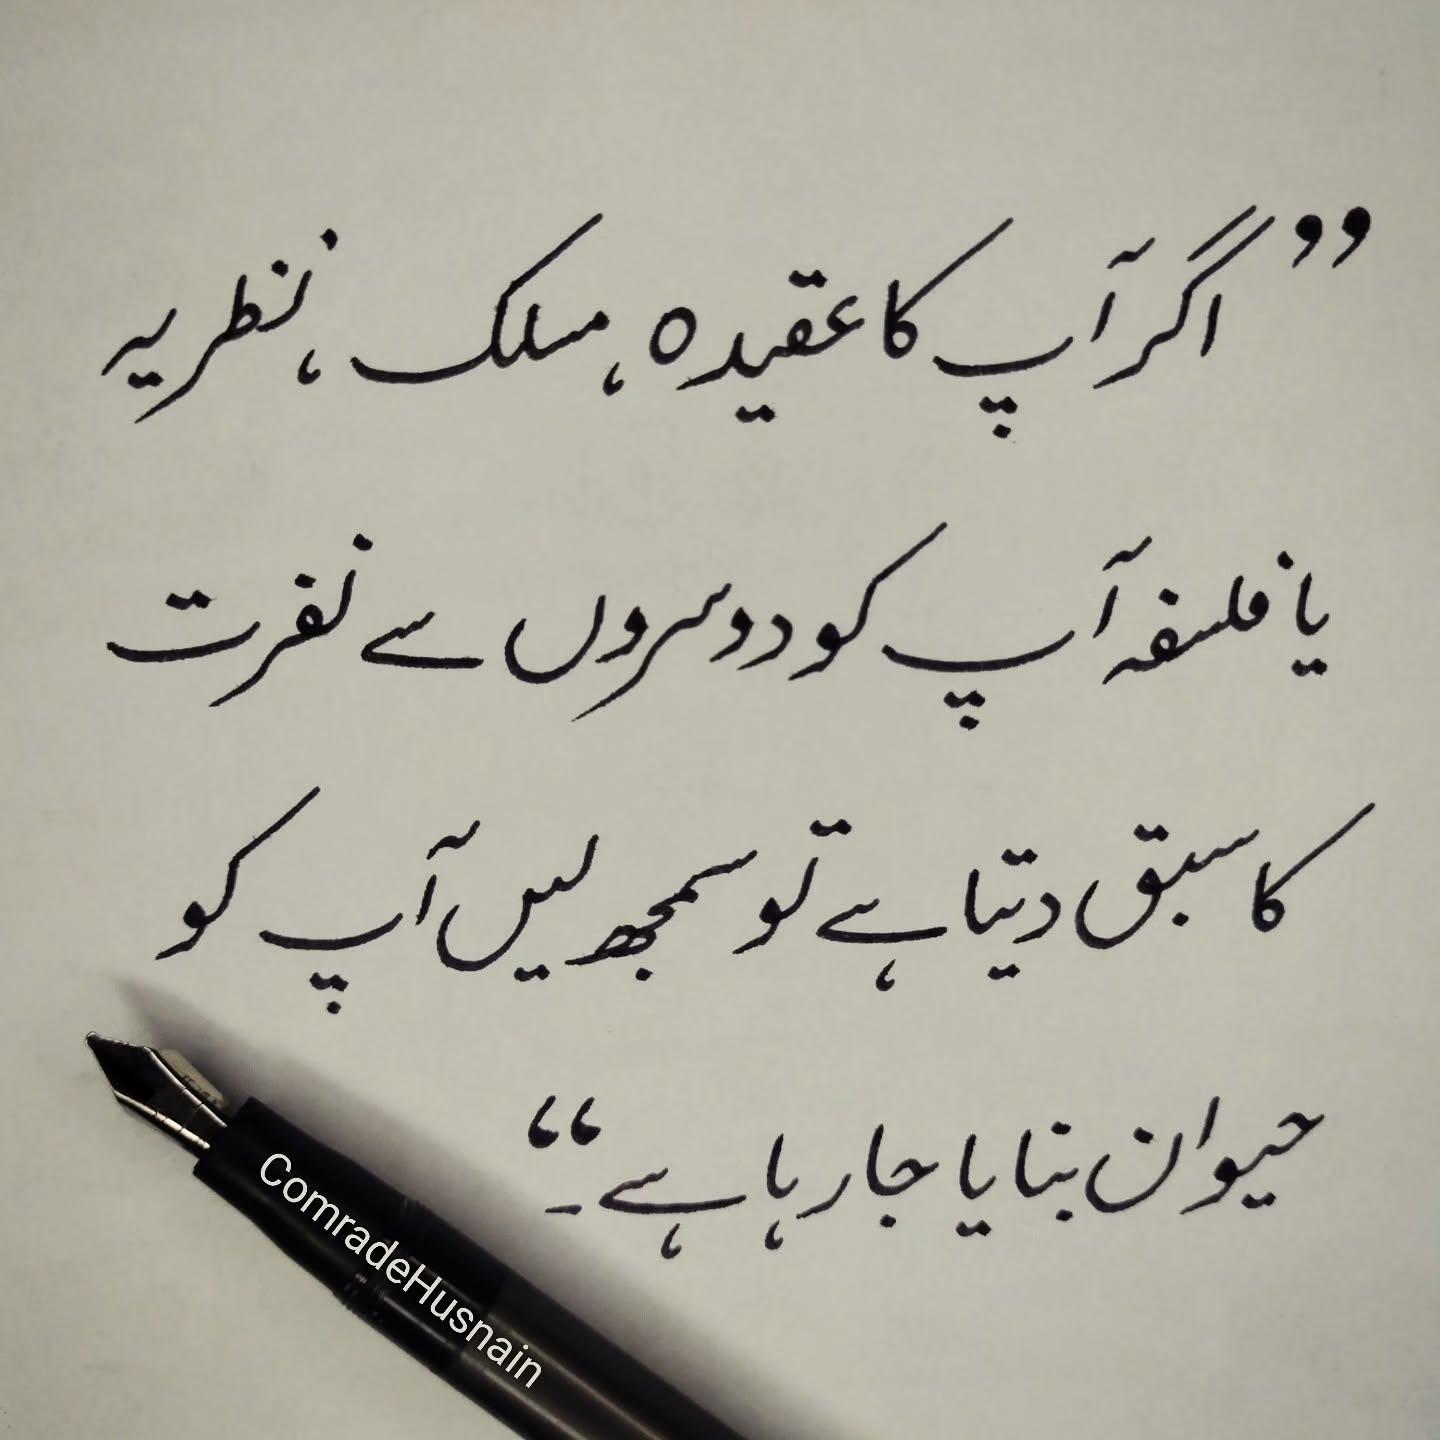 ”اگر آپ کا عقیدہ، مسلک، نظریہ
یا فلسفہ آپ کو دوسروں سے نفرت
کا سبق دیتا ہے تو سمجھ لیں آپ کو
حیوان بنایا جا رہا ہے۔“
ComradeHusnain